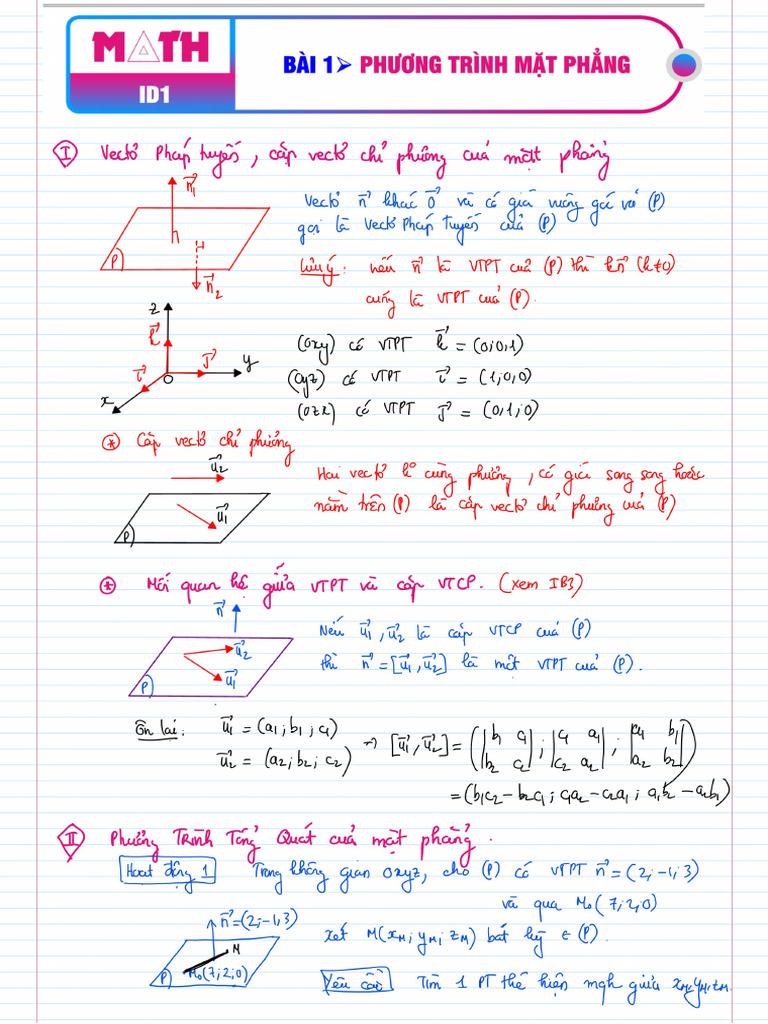 MATH
ID1
BÀI 1➢ PHƯƠNG TRÌNH MẶT PHẲNG
Ⓘ Vectơ Pháp tuyến, cặp vectơ chỉ phương của mặt phẳng
n⃗₁
P)
H
n⃗₂
Vectơ n⃗ khác 0⃗ và có giá vuông góc với (P)
gọi là Vectơ Pháp Tuyến của (P)
Lưu ý: nếu n⃗ là VTPT của (P) thì kn⃗ (k≠0)
cũng là VTPT của (P).
z
k⃗
i⃗
j⃗
y
O
x
(Oxy) có VTPT k⃗ = (0;0;1)
(Oyz) có VTPT i⃗ = (1;0;0)
(Ozx) có VTPT j⃗ = (0;1;0)
⊛ Cặp vectơ chỉ phương
u⃗₂
u⃗₁
P)
Hai vectơ k cùng phương, có giá song song hoặc
nằm trên (P) là cặp vectơ chỉ phương của (P)
⊛ Mối quan hệ giữa VTPT và cặp VTCP. (xem IB3)
n⃗
u⃗₂
u⃗₁
P)
Nếu u⃗₁, u⃗₂ là cặp VTCP của (P)
thì n⃗ = [u⃗₁, u⃗₂] là một VTPT của (P).
Ôn lại: u⃗₁ = (a₁; b₁; c₁)
u⃗₂ = (a₂; b₂; c₂)
⇒ [u⃗₁, u⃗₂] = (|b₁ c₁|; |c₁ a₁|; |a₁ b₁|)
|b₂ c₂| |c₂ a₂| |a₂ b₂|
= (b₁c₂ − b₂c₁; c₁a₂ − c₂a₁; a₁b₂ − a₂b₁)
Ⓘⓘ Phương Trình Tổng Quát của mặt phẳng.
Hoạt động 1 Trong không gian Oxyz, cho (P) có VTPT n⃗ = (2;−1;3)
và qua M₀(7;2;0)
n⃗ = (2;−1;3)
M
P) M₀(7;2;0)
xét M(xM; yM; zM) bất kỳ ∈ (P).
Yêu cầu Tìm 1 PT thể hiện mqh giữa xM; yM; zM.